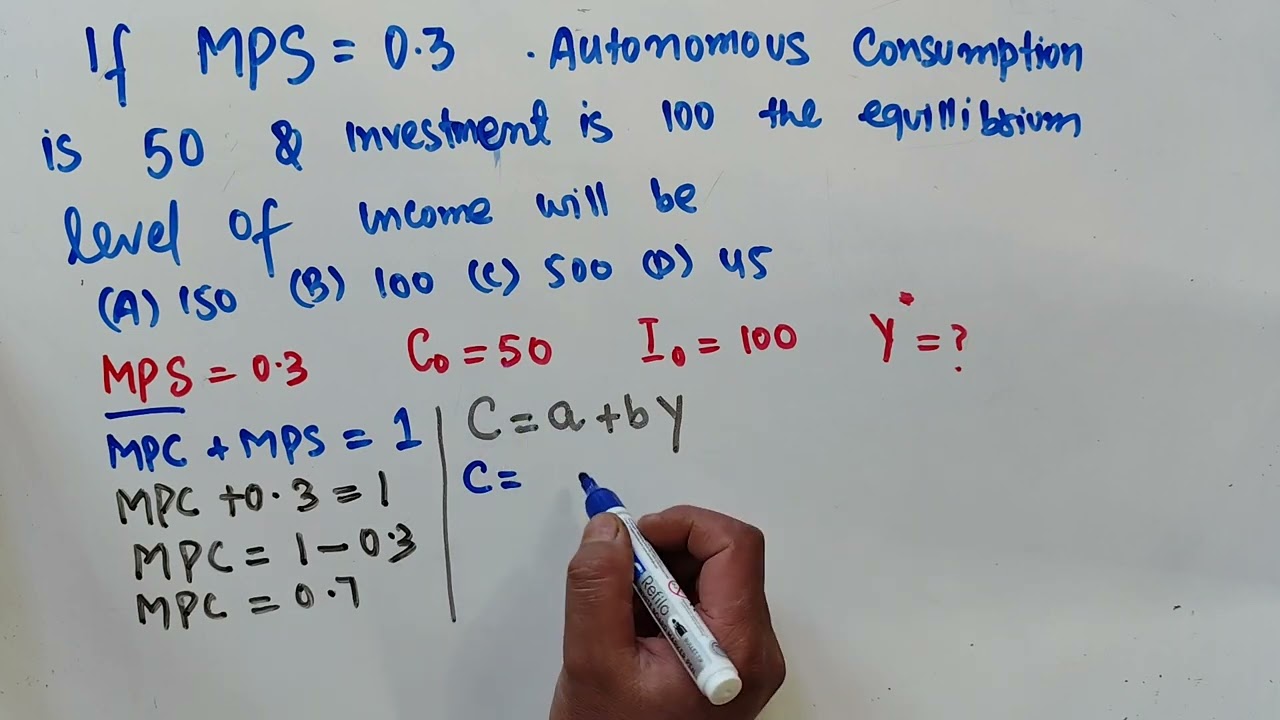 If MPS = 0.3 . Autonomous Consumption
is 50 & investment is 100 the equillibrium
level of income will be
(A) 150 (B) 100 (C) 500 (D) 45
MPS = 0.3 C₀ = 50 I₀ = 100 Y* = ?
MPC + MPS = 1
MPC + 0.3 = 1
MPC = 1 - 0.3
MPC = 0.7
C = a + bY
C =
Refilo